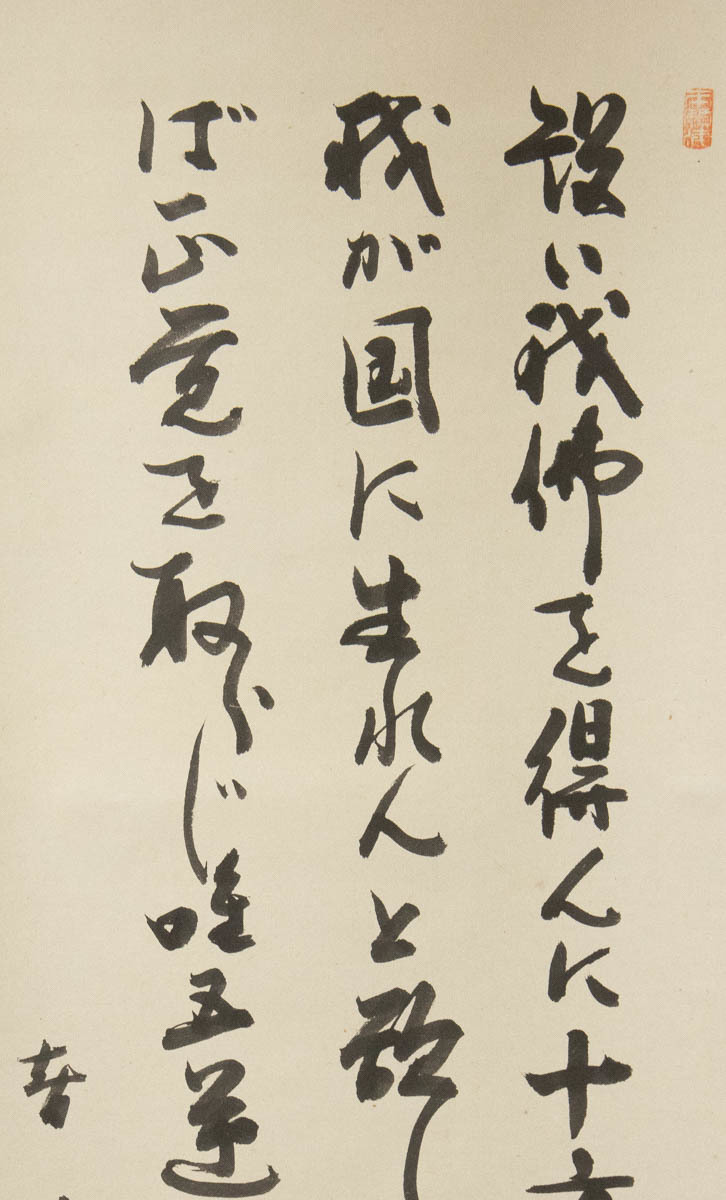 設い我佛を得んに十方
我が国に生れんと欲し
ば正覚を取らじ唯五逆